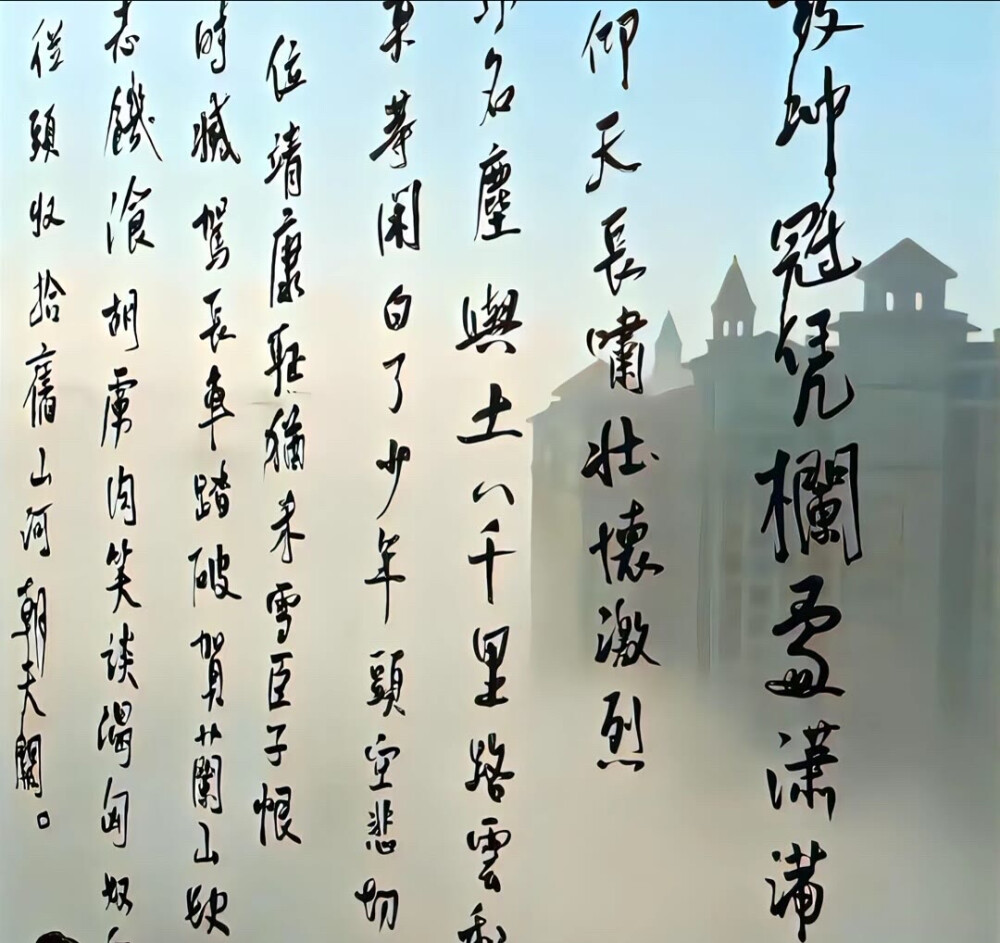 冲冠凭欄處潇满
仰天長嘯壯懷激烈
名塵與土八千里路雲和
等閑白了少年頭空悲切
靖康耻猶未雪臣子恨
時滅駕長車踏破賀蘭山缺
志饑湌胡虜肉笑談渴匈奴
從頭收拾舊山河朝天闕。